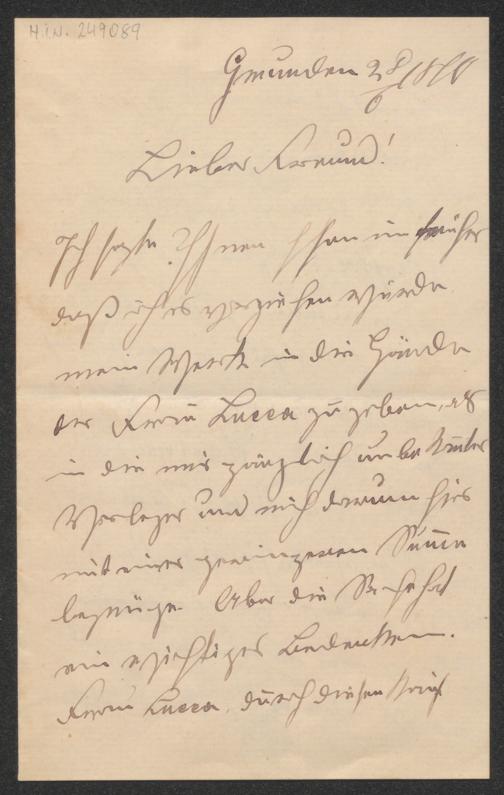 H.I.N. 249089
Gmunden 28/6 1880
Lieber Freund!
Ich sagte Ihnen schon im früher
daß ich es vorziehen würde
mein Werk in die Hände
der Frau Lucca zu geben, als
in die mir gänzlich unbekannter
Verleger und mich darum hier
mit einer geringeren Summe
begnüge. Aber die Sache hat
ein wichtiges Bedenken.
Frau Lucca, durch diesen